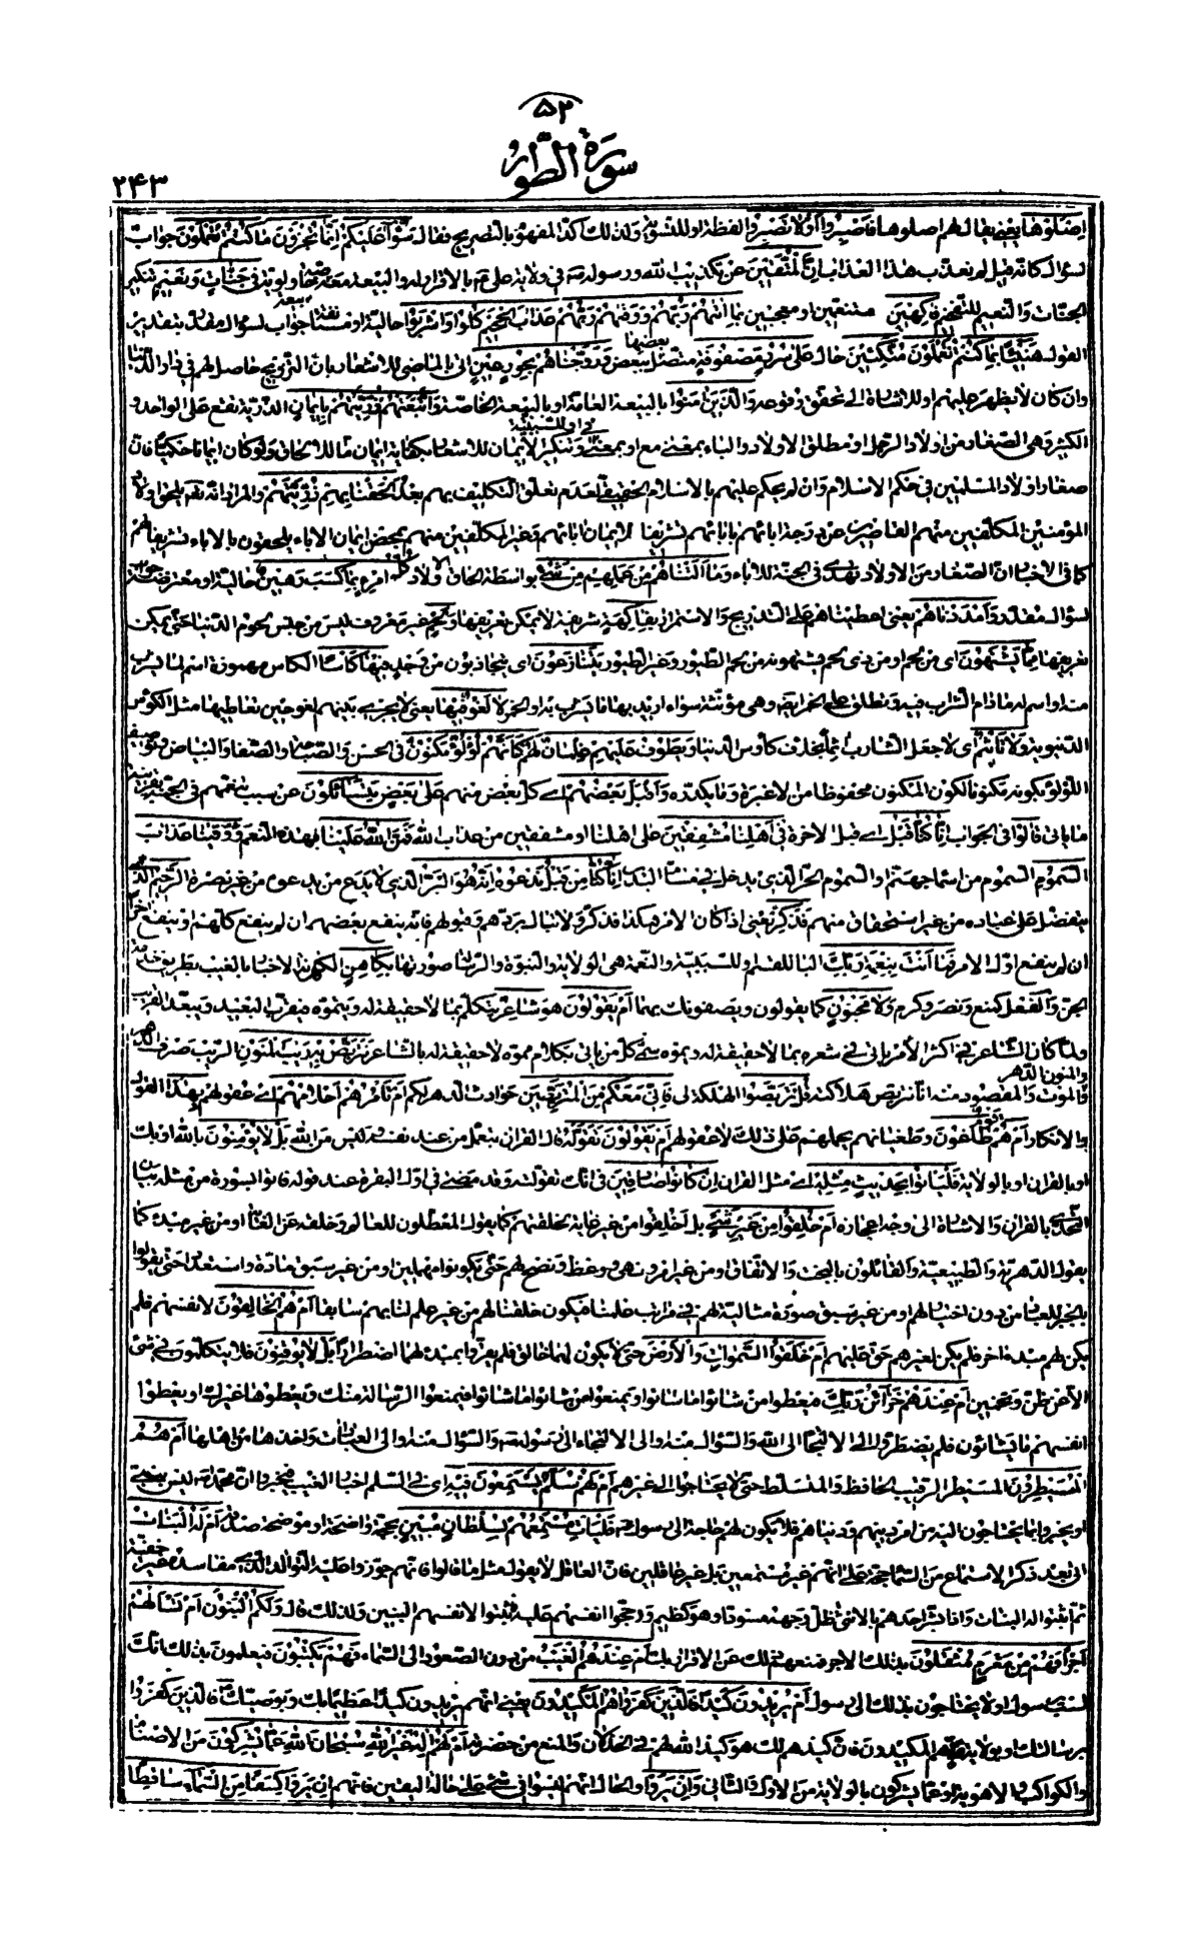 ۵۲
سورة الطور
۲۴۳
اِصْلَوْها بعض يقال لهم اصلوها فَاصْبِرُوا اَوْ لا تَصْبِرُوا لفظة او للتسوية ولذلك اكّد المفهوم بالتصريح فقال سَوآءٌ عَلَيْكُمْ اِنَّما تُجْزَوْنَ ما كُنْتُمْ تَعْمَلُونَ جواب
لسؤال كانه قيل لم نعذب هذا العذاب اِنَّ الْمُتَّقينَ عن تكذيب الله ورسوله في ولاية علي بالاقرار له والبيعة معه في جَنّاتٍ وَ نَعيمٍ تنكير
الجنّات والنعيم للتفخيم فاكِهينَ متنعمين او معجبين بِما اتيهُمْ رَبُّهُمْ وَ وَقيهُمْ رَبُّهُمْ عَذابَ الْجَحيمِ كُلُوا وَ اشْرَبُوا حالية او مستأنفة جواب لسؤال مقدّر بتقدير
القول هَنيئاً بِما كُنْتُمْ تَعْمَلُونَ مُتَّكِئينَ حال عَلى سُرُرٍ مَصْفُوفَةٍ متصل بعضها ببعض وَ زَوَّجْناهُمْ بِحُورٍ عينٍ اتى بالماضي للاشعار بان التزويج حاصل لهم في دار الدنيا
وان كان لا يظهر عليهم او للاشارة الى تحقق وقوعه وَ الَّذينَ امَنُوا بالبيعة العامة او بالبيعة الخاصة وَ اتَّبَعَتْهُمْ ذُرِّيَّتُهُمْ بِايمانٍ الذرية تقع على الواحد و
الكثير وهي الصغار من اولاد الرجل او مطلق الاولاد والباء بمعنى مع او بمعنى في او للسببية وتنكير الايمان للاشعار بكفاية ايمان ما للالحاق ولو كان ايمانا حكميّا فان
صغار اولاد المسلمين في حكم الاسلام وان لم يحكم عليهم بالاسلام الحقيقي لعدم تعلق التكليف بهم بعد اَلْحَقْنا بِهِمْ ذُرِّيَّتَهُمْ والمراد انه تعالى يلحق اولاد
المؤمنين المكلفين منهم القاصرين عن درجة ابائهم بابائهم تشريفا لايمان ابائهم وغير المكلفين منهم بمحض ايمان الاباء يلحقون بالاباء تشريفا لهم
كما في الاخبار ان الصغار من الاولاد تهدى في الجنة للاباء وَ ما اَلَتْناهُمْ مِنْ عَمَلِهِمْ مِنْ شَيْءٍ بواسطة الحاق الاولاد كُلُّ امْرِئٍ بِما كَسَبَ رَهينٌ حالية او معترضة جواب
لسؤال مقدر وَ اَمْدَدْناهُمْ يعني اعطيناهم على التدريج والاستمرار بِفاكِهَةٍ شريفة لا يمكن تعريفها وَ لَحْمٍ غير معروف ليس من جنس لحوم الدنيا حتى يمكن
تعريفها مِمّا يَشْتَهُونَ اى من لحم او من ذى لحم يشتهونه من لحم الطيور وغير الطيور يَتَنازَعُونَ اى يتجاذبون من وجدٍ فيها كَأْساً الكاس مهموزة اسم لما يشرب
منه او اسم له ما دام الشراب فيه وتطلق على الخمر ايضا وهي مؤنثة سواء اريد بها ما يشرب به او الخمر لا لَغْوٌ فيها يعني لا يجرى بينهم لغو حين تعاطيها مثل الكوس
الدنيوية وَ لا تَأْثيمٌ اى لا جعل الشارب اثما بخلاف كأوس الدنيا وَ يَطُوفُ عَلَيْهِمْ غِلْمانٌ لَهُمْ كَاَنَّهُمْ لُؤْلُؤٌ مَكْنُونٌ في الحسن والصباء والصفاء والبياض وتوصيف
اللؤلؤ بكونه مكنونا لكون المكنون محفوظا من الاغبرة وما يكدره وَ اَقْبَلَ بَعْضُهُمْ اى كل بعض منهم عَلى بَعْضٍ يَتَسائَلُونَ عن سبب تنعمهم في الجنة بقرينة
ما يأتى قالُوا في الجواب اِنّا كُنّا قَبْلُ اى قبل الاخرة في اَهْلِنا مُشْفِقينَ على اهلنا او مشفقين من عذاب الله فَمَنَّ اللهُ عَلَيْنا بهذه النعم وَ وَقينا عَذابَ
السَّمُومِ السموم من اسماء جهنم او السموم الحرّ الذي يدخل في منشأ البدن اِنّا كُنّا مِنْ قَبْلُ نَدْعُوهُ اِنَّهُ هُوَ الْبَرُّ الذي لا يدع من يدعوه من غير نصرة الرَّحيمُ الذي
يتفضل على عباده من غير استحقاق منهم فَذَكِّرْ يعني اذا كان الامر هكذا فذكّر ولا تبال بردهم وقبولهم فانه ينفع بعضهم ان لم ينفع كلهم او ينفع اخر
ان لم ينفع اول الامر فَما اَنْتَ بِنِعْمَةِ رَبِّكَ الباء للقسم او للسببية والنعمة هي الولاية والنبوة والرسالة صورتها بِكاهِنٍ الكهانة الاخبار بالغيب بطريق خدمة
الجن والفعل كمنع ونصر وكرم وَ لا مَجْنُونٍ كما يقولون ويصفونك بهما اَمْ يَقُولُونَ هو شاعِرٌ يتكلم بما لا حقيقة له ويموّه فيقرّب البعيد ويبعّد القريب
ولما كان الشاعر في اكثر الامر يأتى في شعره بما لا حقيقة له ويموه سمّى كل من يأتى بكلام مموّه لا حقيقة له بالشاعر نَتَرَبَّصُ بِه رَيْبَ الْمَنُونِ الريب صرف الدهر
والمنون الدهر
والموت والمقصود منه انا نتربص هلاكه قُلْ تَرَبَّصُوا الهلكة لى فَاِنّي مَعَكُمْ مِنَ الْمُتَرَبِّصينَ حوادث الدهر لكم اَمْ تَأْمُرُهُمْ اَحْلامُهُمْ اى عقولهم بِهذا القول
والانكار اَمْ هُمْ قَوْمٌ طاغُونَ وطغيانهم يحملهم على ذلك لا عقولهم اَمْ يَقُولُونَ تَقَوَّلَهُ قال القران بتعمل من عند نفسه ليس من الله بَلْ لا يُؤْمِنُونَ بالله او بك
او بالقران او بالولاية فَلْيَأْتُوا بِحَديثٍ مِثْلِه اى مثل القران اِنْ كانُوا صادِقينَ في انك تقولته وقد مضى في اول البقرة عند قوله فاتوا بسورة من مثله بيان
التحدى بالقران والاشارة الى وجه اعجازه اَمْ خُلِقُوا مِنْ غَيْرِ شَيْءٍ بل أخُلقوا من غير غاية لخلقتهم كما يقوله المعطلون للعالم وخلقه عن الغاية او من غير مبدء كما
يقوله الدهرية والطبيعية والقائلون بالبخت والاتفاق او من غير امر ونهى ووعظ ونصح لهم حتى يكونوا مهملين او من غير سبق مادة واستعداد حتى يقولوا
بالجبر للعباد من دون اختيار لهم او من غير سبق صورة مثالية لهم في مراتب علمنا فيكون خلقنا لهم من غير علم لنا بهم سابقا اَمْ هُمُ الْخالِقُونَ لانفسهم فلم
يكن لهم مبدء اخر فلم يكن لغيرهم حق عليهم اَمْ خَلَقُوا السَّمواتِ وَ الْاَرْضَ حتى لا يكون لهما خالق فلم يقرّوا بمبدء لهما اضطرارا بَلْ لا يُوقِنُونَ فلا يتكلمون في شئ
الا عن ظن وتخمين اَمْ عِنْدَهُمْ خَزآئِنُ رَبِّكَ فيعطوا من شاؤا ما شاؤا ويمنعوا من شاؤا ما شاؤا فيمنعوا الرسالة منك ويعطوها غيرك او يعطوا
انفسهم ما يشاؤن فلم يضطروا الى الالتجاء الى الله والسؤال منه او الى الالتجاء الى رسوله والسؤال منه او الى العبادات واخذها من اهلها اَمْ هُمُ
الْمُصَيْطِرُونَ المسيطر الرقيب الحافظ والمتسلط حتى لا يحتاجوا الى غيرهم اَمْ لَهُمْ سُلَّمٌ يَسْتَمِعُونَ فيهِ اى في السلم اخبار الغيب فيخبروا ان محمدا ليس بنبي
او يخبروا بما يحتاجون اليه من امر دينهم ودنياهم فلا يكون لهم حاجة الى رسول فَلْيَأْتِ مُسْتَمِعُهُمْ بِسُلْطانٍ مُبينٍ بحجة واضحة او موضحة صدقه اَمْ لَهُ الْبَناتُ
اتى بعد ذكر الاستماع من السماء حجة على انهم غير مستمعين بل غير عاقلين فان العاقل لا يقول مثل ما قالوا فانهم جوزوا عليه التوالد الذى مفاسده غير خفية
ثم اثبتوا له البنات واذا بشر احدهم بالانثى ظل وجهه مسودا وهو كظيم ورجحوا انفسهم عليه فاثبتوا لانفسهم البنين ولذلك قال وَ لَكُمُ الْبَنُونَ اَمْ تَسْأَلُهُمْ
اَجْراً فَهُمْ مِنْ مَغْرَمٍ مُثْقَلُونَ بذلك الاجر فمنعهم ذلك عن الاقرار بك اَمْ عِنْدَهُمُ الْغَيْبُ من دون الصعود الى السماء فَهُمْ يَكْتُبُونَ فيعلمون بذلك انك
لست برسول او لا يحتاجون بذلك الى رسول اَمْ يُريدُونَ كَيْداً فَالَّذينَ كَفَرُوا هُمُ الْمَكيدُونَ يعني انهم يريدون كيدا عظيما بك وبوصيك فالذين كفروا
برسالتك او بولاية علي هم المكيدون فان كيدهم لك هو كيد الله لهم في الخذلان والمنع من حضرته اَمْ لَهُمْ اِلهٌ غَيْرُ اللهِ سُبْحانَ اللهِ عَمّا يُشْرِكُونَ من الاصنام
والكواكب والاهوية او عما يشركون بالولاية من الاول والثاني وَ اِنْ يَرَوْا والحال انهم ليسوا في شئ على حالة اليقين فانهم اِنْ يَرَوْا كِسْفاً مِنَ السَّمآءِ ساقِطاً